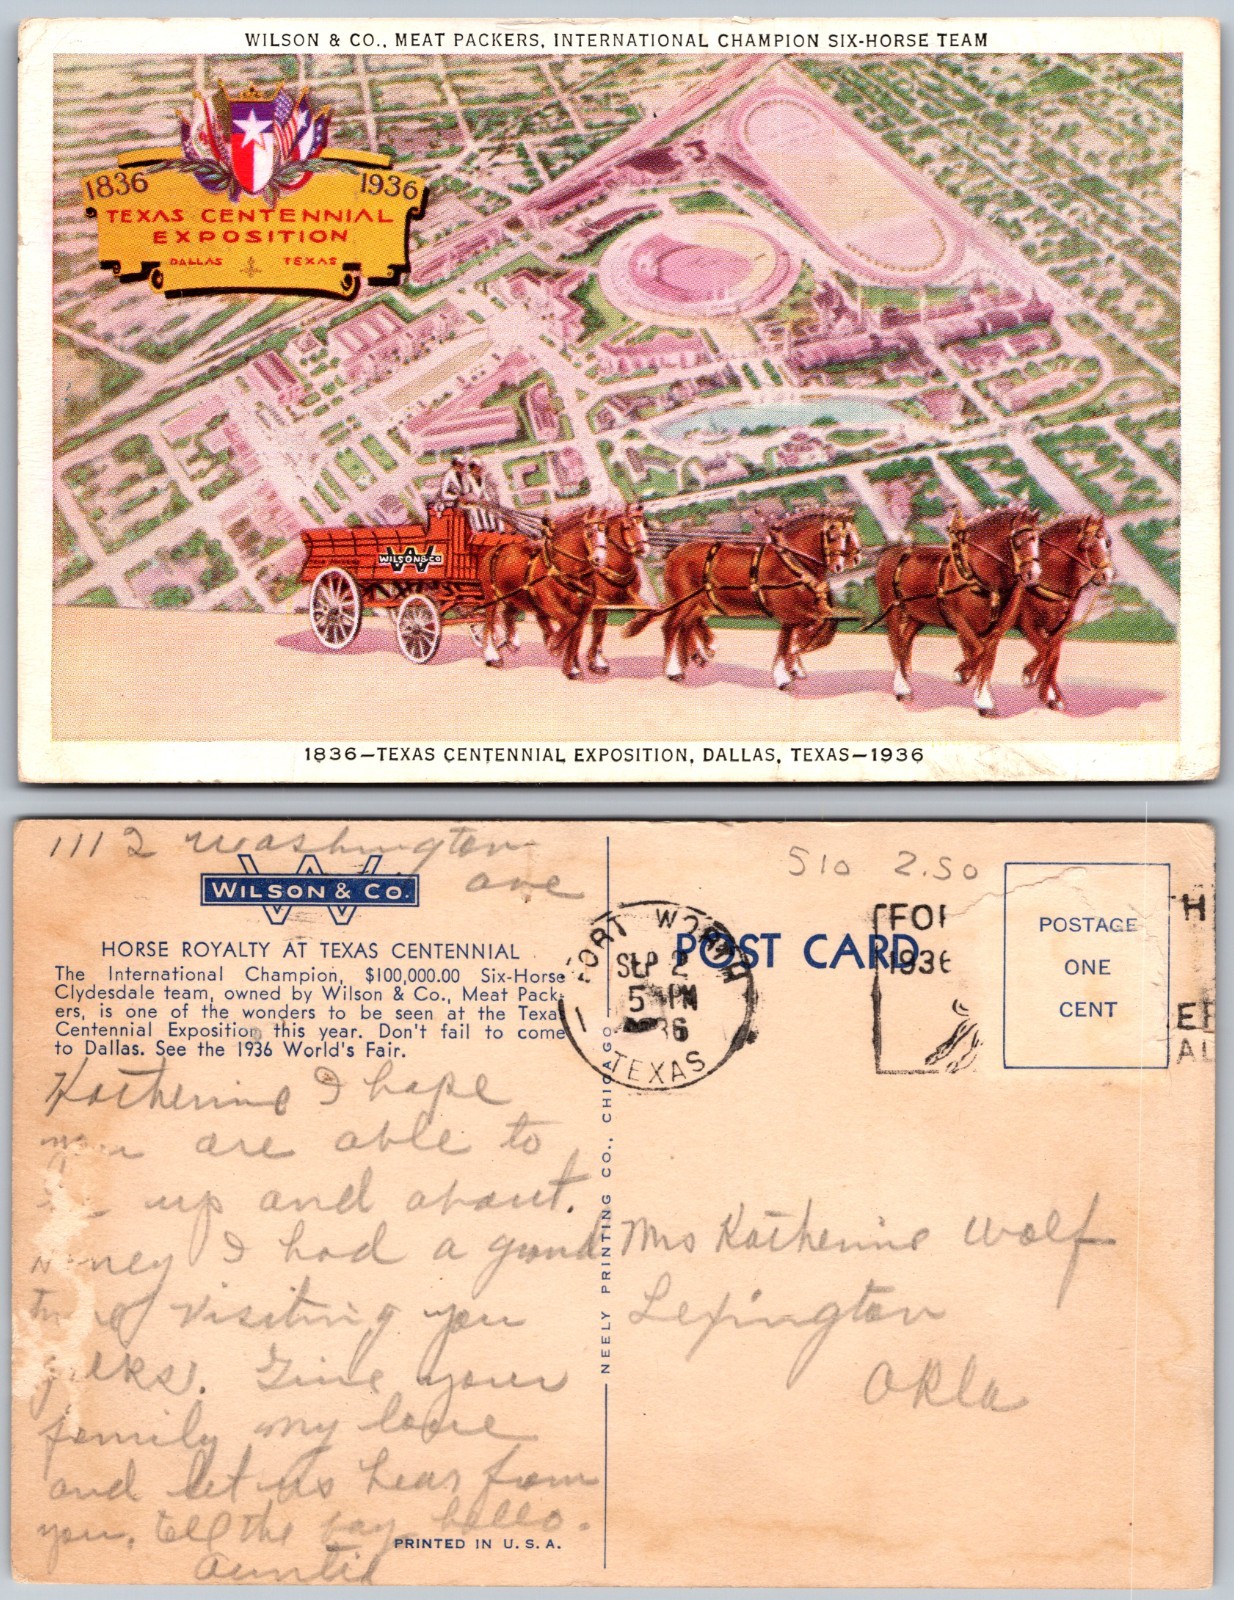 WILSON & CO., MEAT PACKERS, INTERNATIONAL CHAMPION SIX-HORSE TEAM
1836 1936
TEXAS CENTENNIAL
EXPOSITION
DALLAS TEXAS
WILSON & CO
1836—TEXAS CENTENNIAL EXPOSITION, DALLAS, TEXAS—1936
1112 Washington
ave
WILSON & CO.
HORSE ROYALTY AT TEXAS CENTENNIAL
The International Champion, $100,000.00 Six-Horse
Clydesdale team, owned by Wilson & Co., Meat Pack-
ers, is one of the wonders to be seen at the Texas
Centennial Exposition this year. Don't fail to come
to Dallas. See the 1936 World's Fair.
Katherine I hope
are able to
up and about.
I had a grand
visiting you
Give your
family my love
and let us hear from
you. Tell the boy hello.
Auntie
PRINTED IN U. S. A.
NEELY PRINTING CO., CHICAGO
FORT WORTH
SEP 2
5 PM
36
TEXAS
POST CARD
510 2.50
FOR
1936
POSTAGE
ONE
CENT
H
Mrs Katherine Wolf
Lexington
Okla